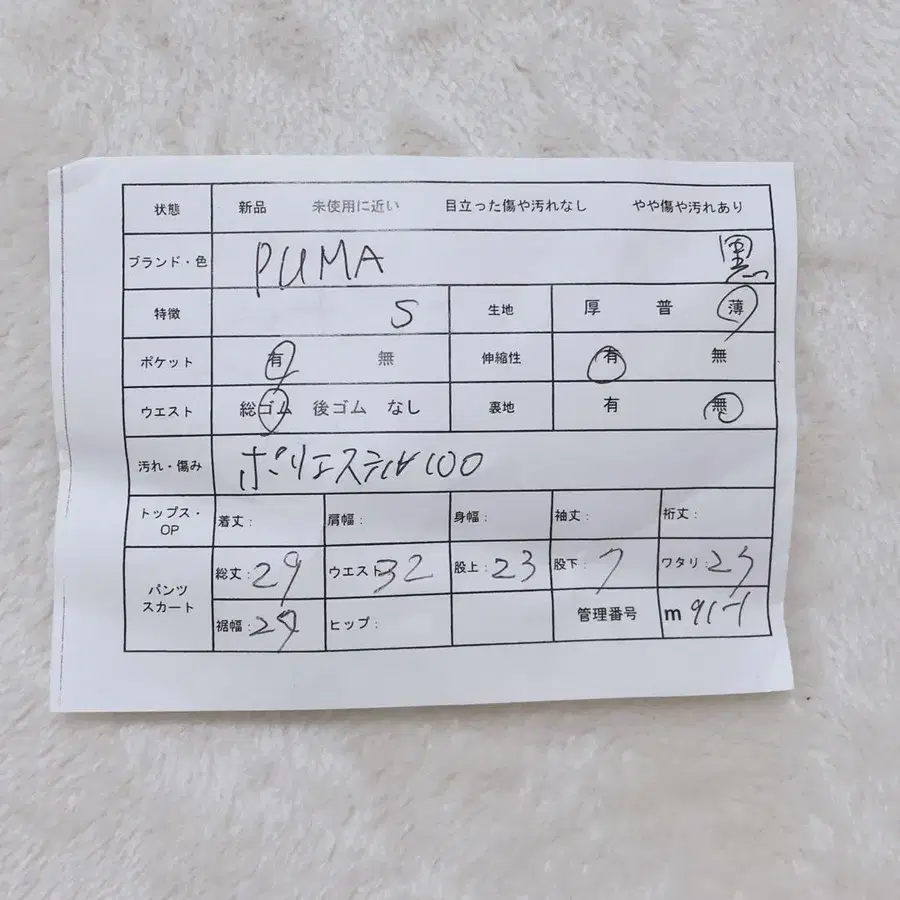 状態 新品 未使用に近い 目立った傷や汚れなし やや傷や汚れあり
ブランド・色 PUMA 黒
特徴 S 生地 厚 普 薄
ポケット 有 無 伸縮性 有 無
ウエスト 総ゴム 後ゴム なし 裏地 有 無
汚れ・傷み ポリエステル100
トップス・OP 着丈: 肩幅: 身幅: 袖丈: 裄丈:
パンツ スカート 総丈: 29 ウエスト 32 股上: 23 股下: 7 ワタリ: 23
裾幅: ヒップ: 管理番号 m 911-1